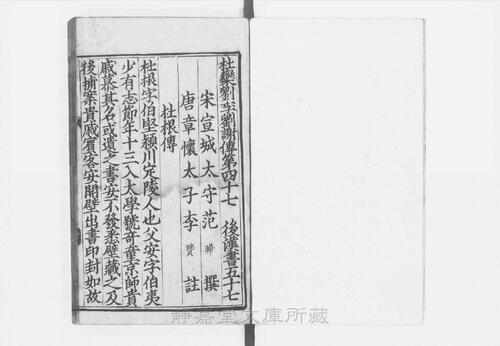 杜欒劉李劉謝傳第四十七　後漢書五十七
宋宣城太守范曄撰
唐章懷太子李賢註
杜根傳
杜根字伯堅潁川定陵人也父安字伯夷
少有志節年十三入太學號奇童京師貴
戚慕其名或遺之書安不發悉壁藏之及
後捕案貴戚賓客安開壁出書印封如故
靜嘉堂文庫所藏